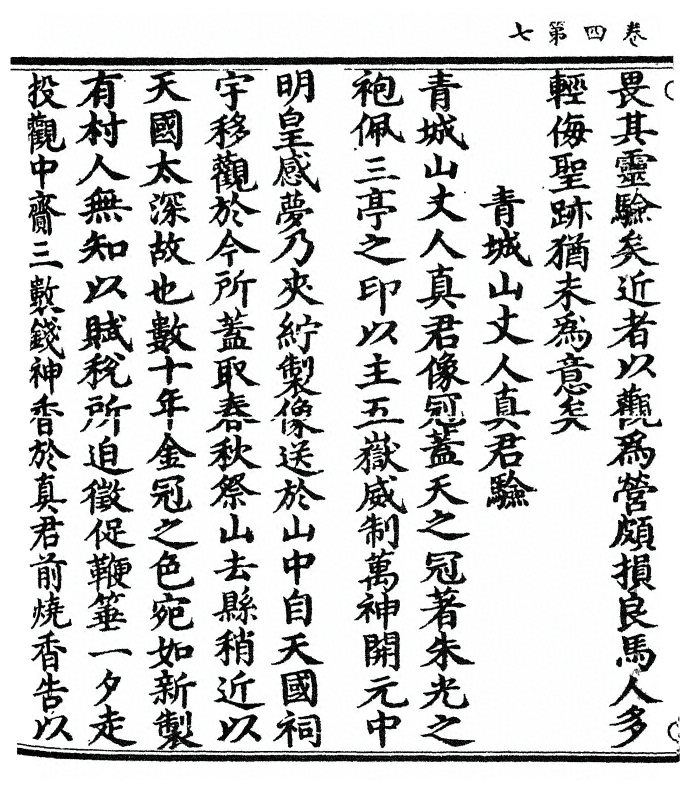 卷四第七
畏其靈驗矣近者以觀為營頗損良馬人多
輕侮聖跡猶未為意矣
青城山丈人真君驗
青城山丈人真君像冠蓋天之冠著朱光之
袍佩三亭之印以主五嶽威制萬神開元中
明皇感夢乃夾紵製像送於山中自天國祠
宇移觀於今所蓋取春秋祭山去縣稍近以
天國太深故也數十年金冠之色宛如新製
有村人無知以賦稅所迫徵促鞭箠一夕走
投觀中齎三數錢神香於真君前燒香告以